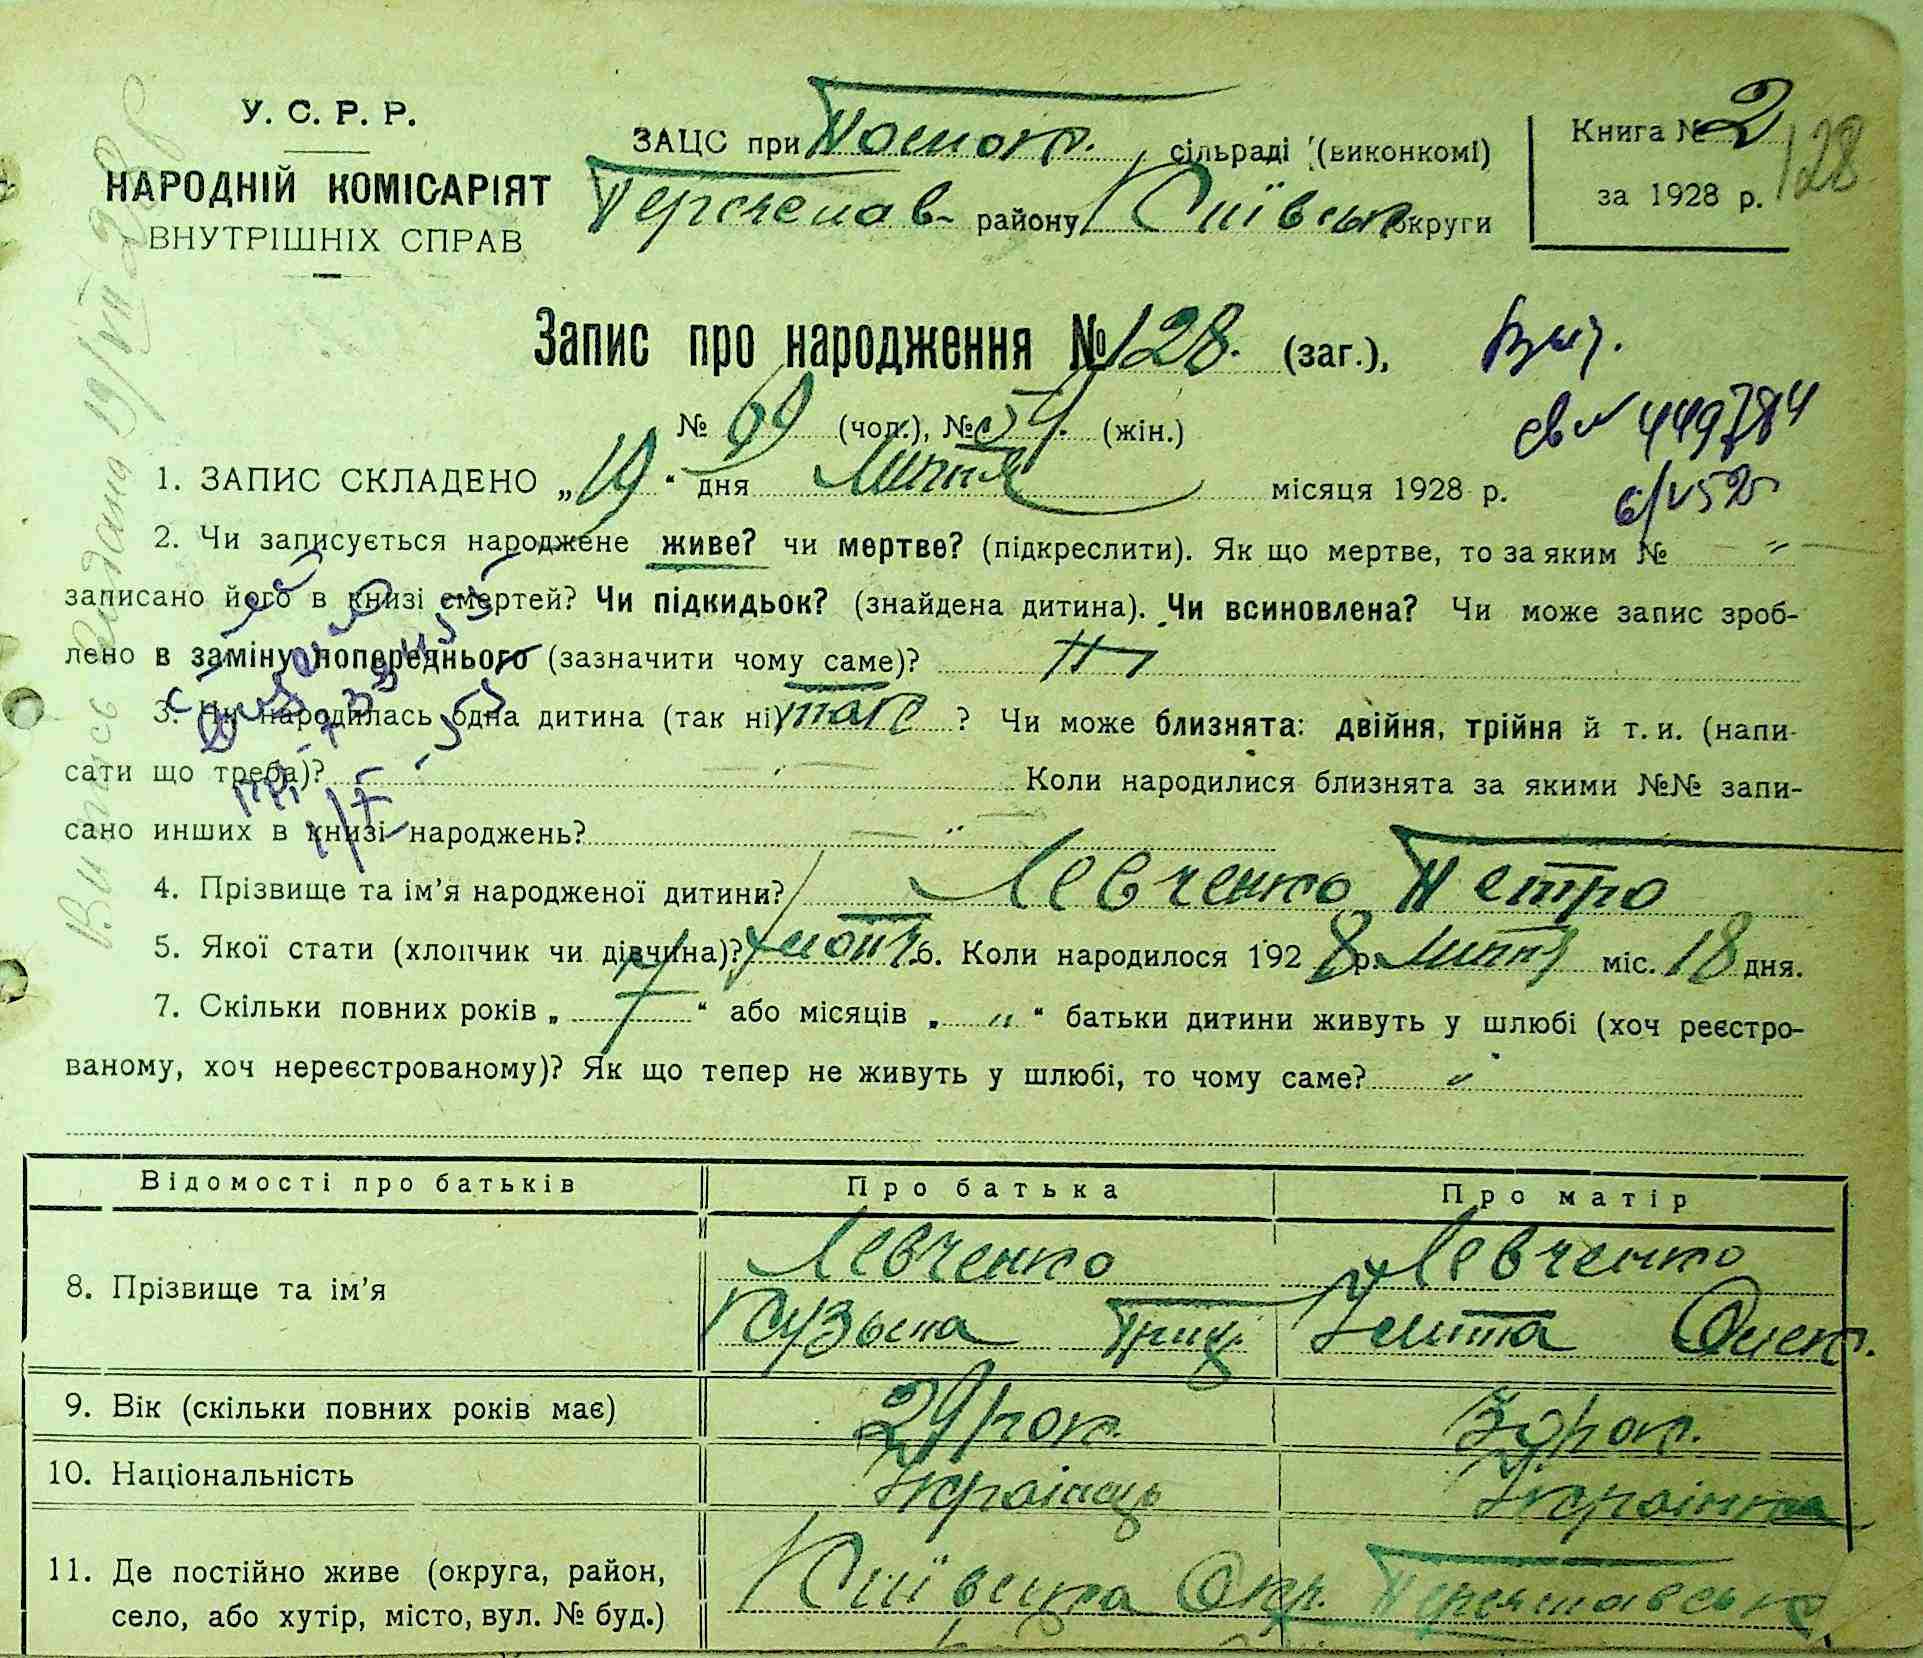 У. С. Р. Р.
НАРОДНІЙ КОМІСАРІЯТ
ВНУТРІШНІХ СПРАВ
ЗАЦС при сільраді (виконкомі)
району Київськ округи
Книга № 2
за 1928 р.
128
Запис про народження № 128. (заг.),
№ 69 (чол.), № 59. (жін.)
Вид.
св № 449784
1. ЗАПИС СКЛАДЕНО „19“ дня липня місяця 1928 р.
2. Чи записується народжене живе? чи мертве? (підкреслити). Як що мертве, то за яким № "
записано його в книзі смертей? Чи підкидьок? (знайдена дитина). Чи всиновлена? Чи може запис зроб-
лено в заміну попереднього (зазначити чому саме)?
3. Чи народилась одна дитина (так ні) так ? Чи може близнята: двійня, трійня й т. и. (напи-
сати що треба)? Коли народилися близнята за якими №№ запи-
сано инших в книзі народжень? "
4. Прізвище та ім’я народженої дитини? Левченко Петро
5. Якої стати (хлопчик чи дівчина)? хлопч. 6. Коли народилося 1928 р. липня міс. 18 дня.
7. Скільки повних років „7“ або місяців „ " “ батьки дитини живуть у шлюбі (хоч реєстро-
ваному, хоч нереєстрованому)? Як що тепер не живуть у шлюбі, то чому саме? "
Відомості про батьків Про батька Про матір
8. Прізвище та ім’я Левченко Левченко
Кузьма Гриц. Олек.
9. Вік (скільки повних років має) 29 рок. 30 рок.
10. Національність Українець Українка
11. Де постійно живе (округа, район, Київська Окр.
село, або хутір, місто, вул. № буд.)